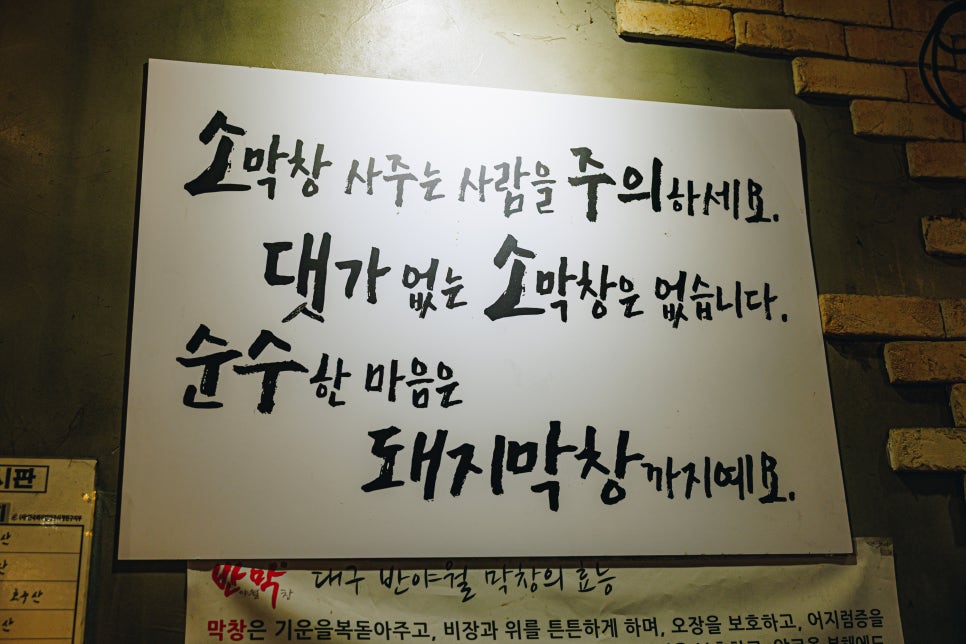 소막창 사주는 사람을 주의하세요.
댓가 없는 소막창은 없습니다.
순수한 마음은
돼지막창까지예요.
시판
반막
야월 창
대구 반야월 막창의 효능
막창은 기운을복돋아주고, 비장과 위를 튼튼하게 하며, 오장을 보호하고, 어지럼증을